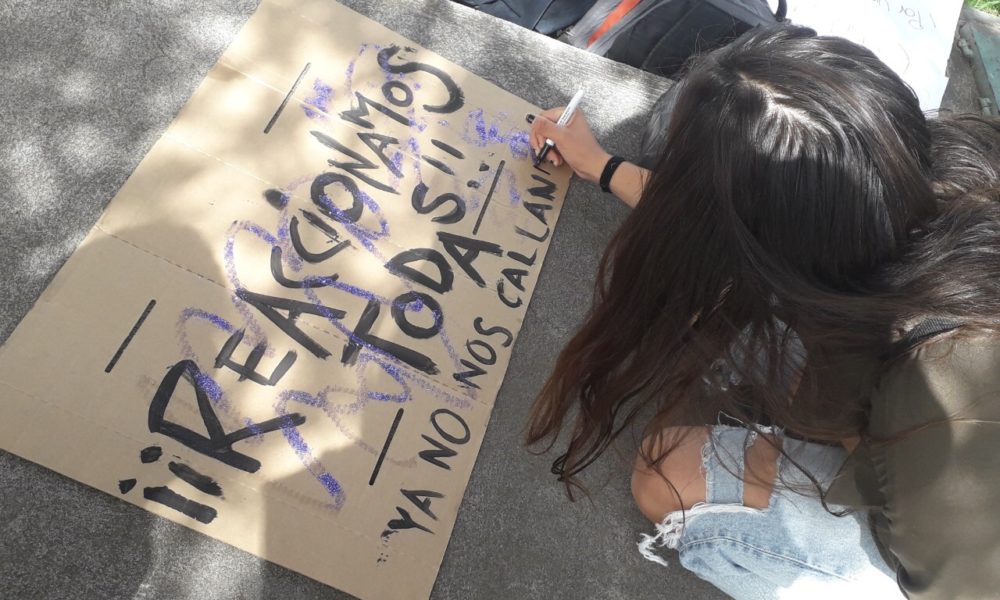 ¡¡REACCIONAMOS
TODAS!!
YA NO NOS CALLAN
Por